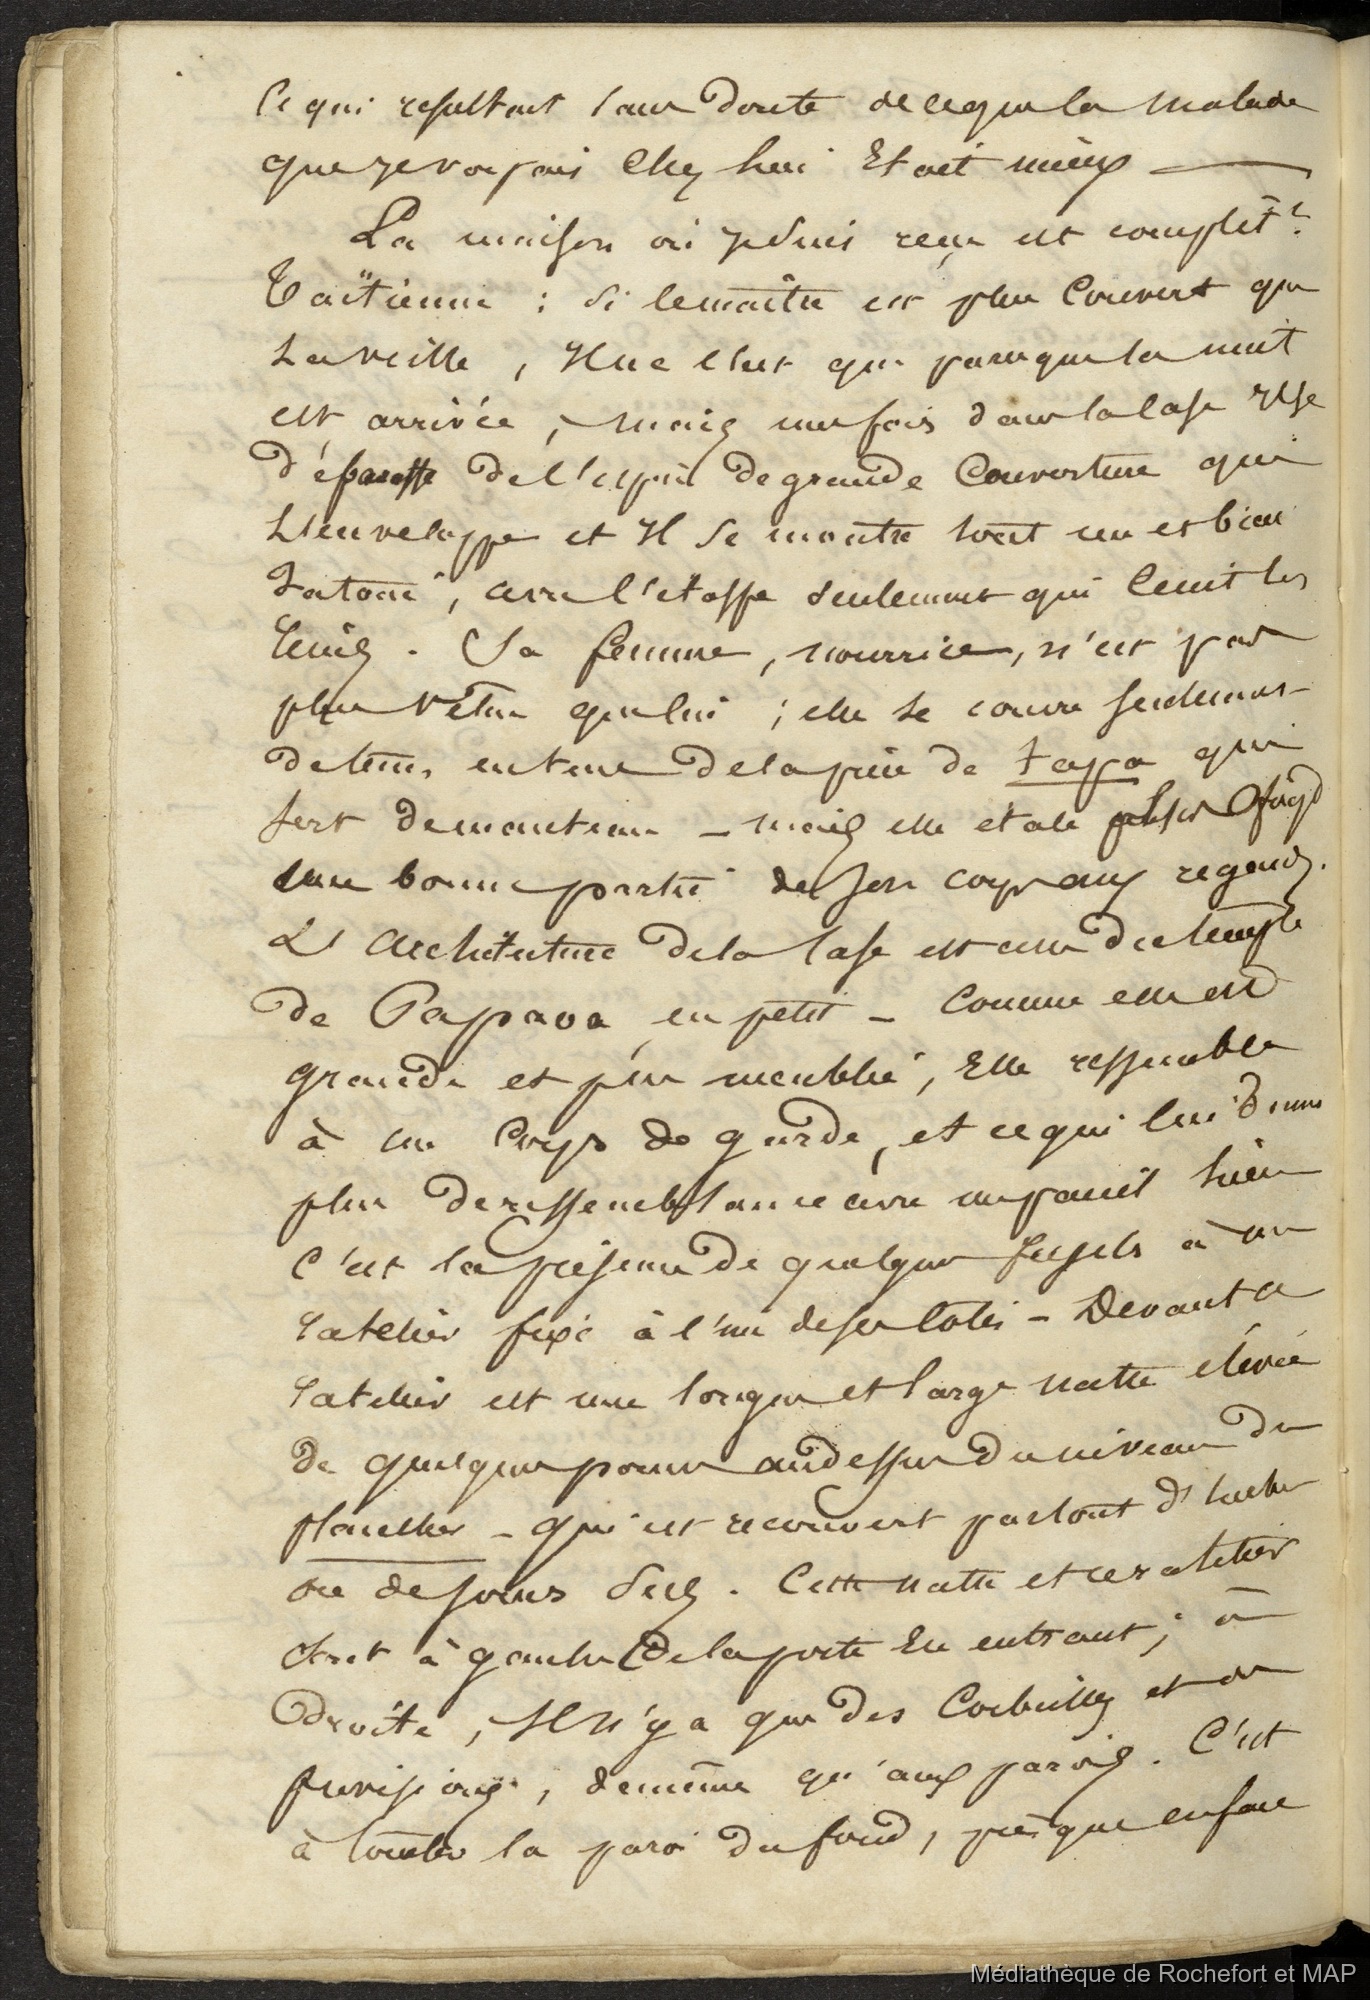 Ce qui resultait sans doute de ce que la malade
que je voyais chez lui était mieux —
La maison où je suis reçu est complèt.t
Taïtienne : si le maître est plus couvert que
la veille, il ne l'est que parceque la nuit
est arrivée, mais une fois dans la case il se
de l'espèce de grande couverture qui
l'enveloppe et il se montre tout nu et bien
tatoué, avec l'étoffe seulement qui ceint les
reins. Sa femme, nourrice, n'est pas
plus vêtue que lui ; elle se couvre seulement
de tems en tems de la pièce de tapa qui
sert de manteau — mais elle étale
une bonne partie de son corps aux regards.
L'architecture de la case est celle du temple
de Papava en petit — Comme elle est
grande et peu meublée, Elle ressemble
à un Corps de garde, et ce qui lui donne
plus de ressemblance avec un pareil lieu
c'est la présence de quelques fusils à un
ratelier fixé à l'un de ses côtés — Devant ce
ratelier est une longue et large natte élevée
de quelques pouces audessus du niveau du
plancher — qui est recouvert partout d'herbes
ou de joncs secs. Cette natte et ce ratelier
sont à gauche de la porte en entrant ; à
droite, il n'y a que des Corbeilles et des
provisions, de même qu'aux parois. C'est
à la paroi du fond, presque en face
Médiathèque de Rochefort et MAP